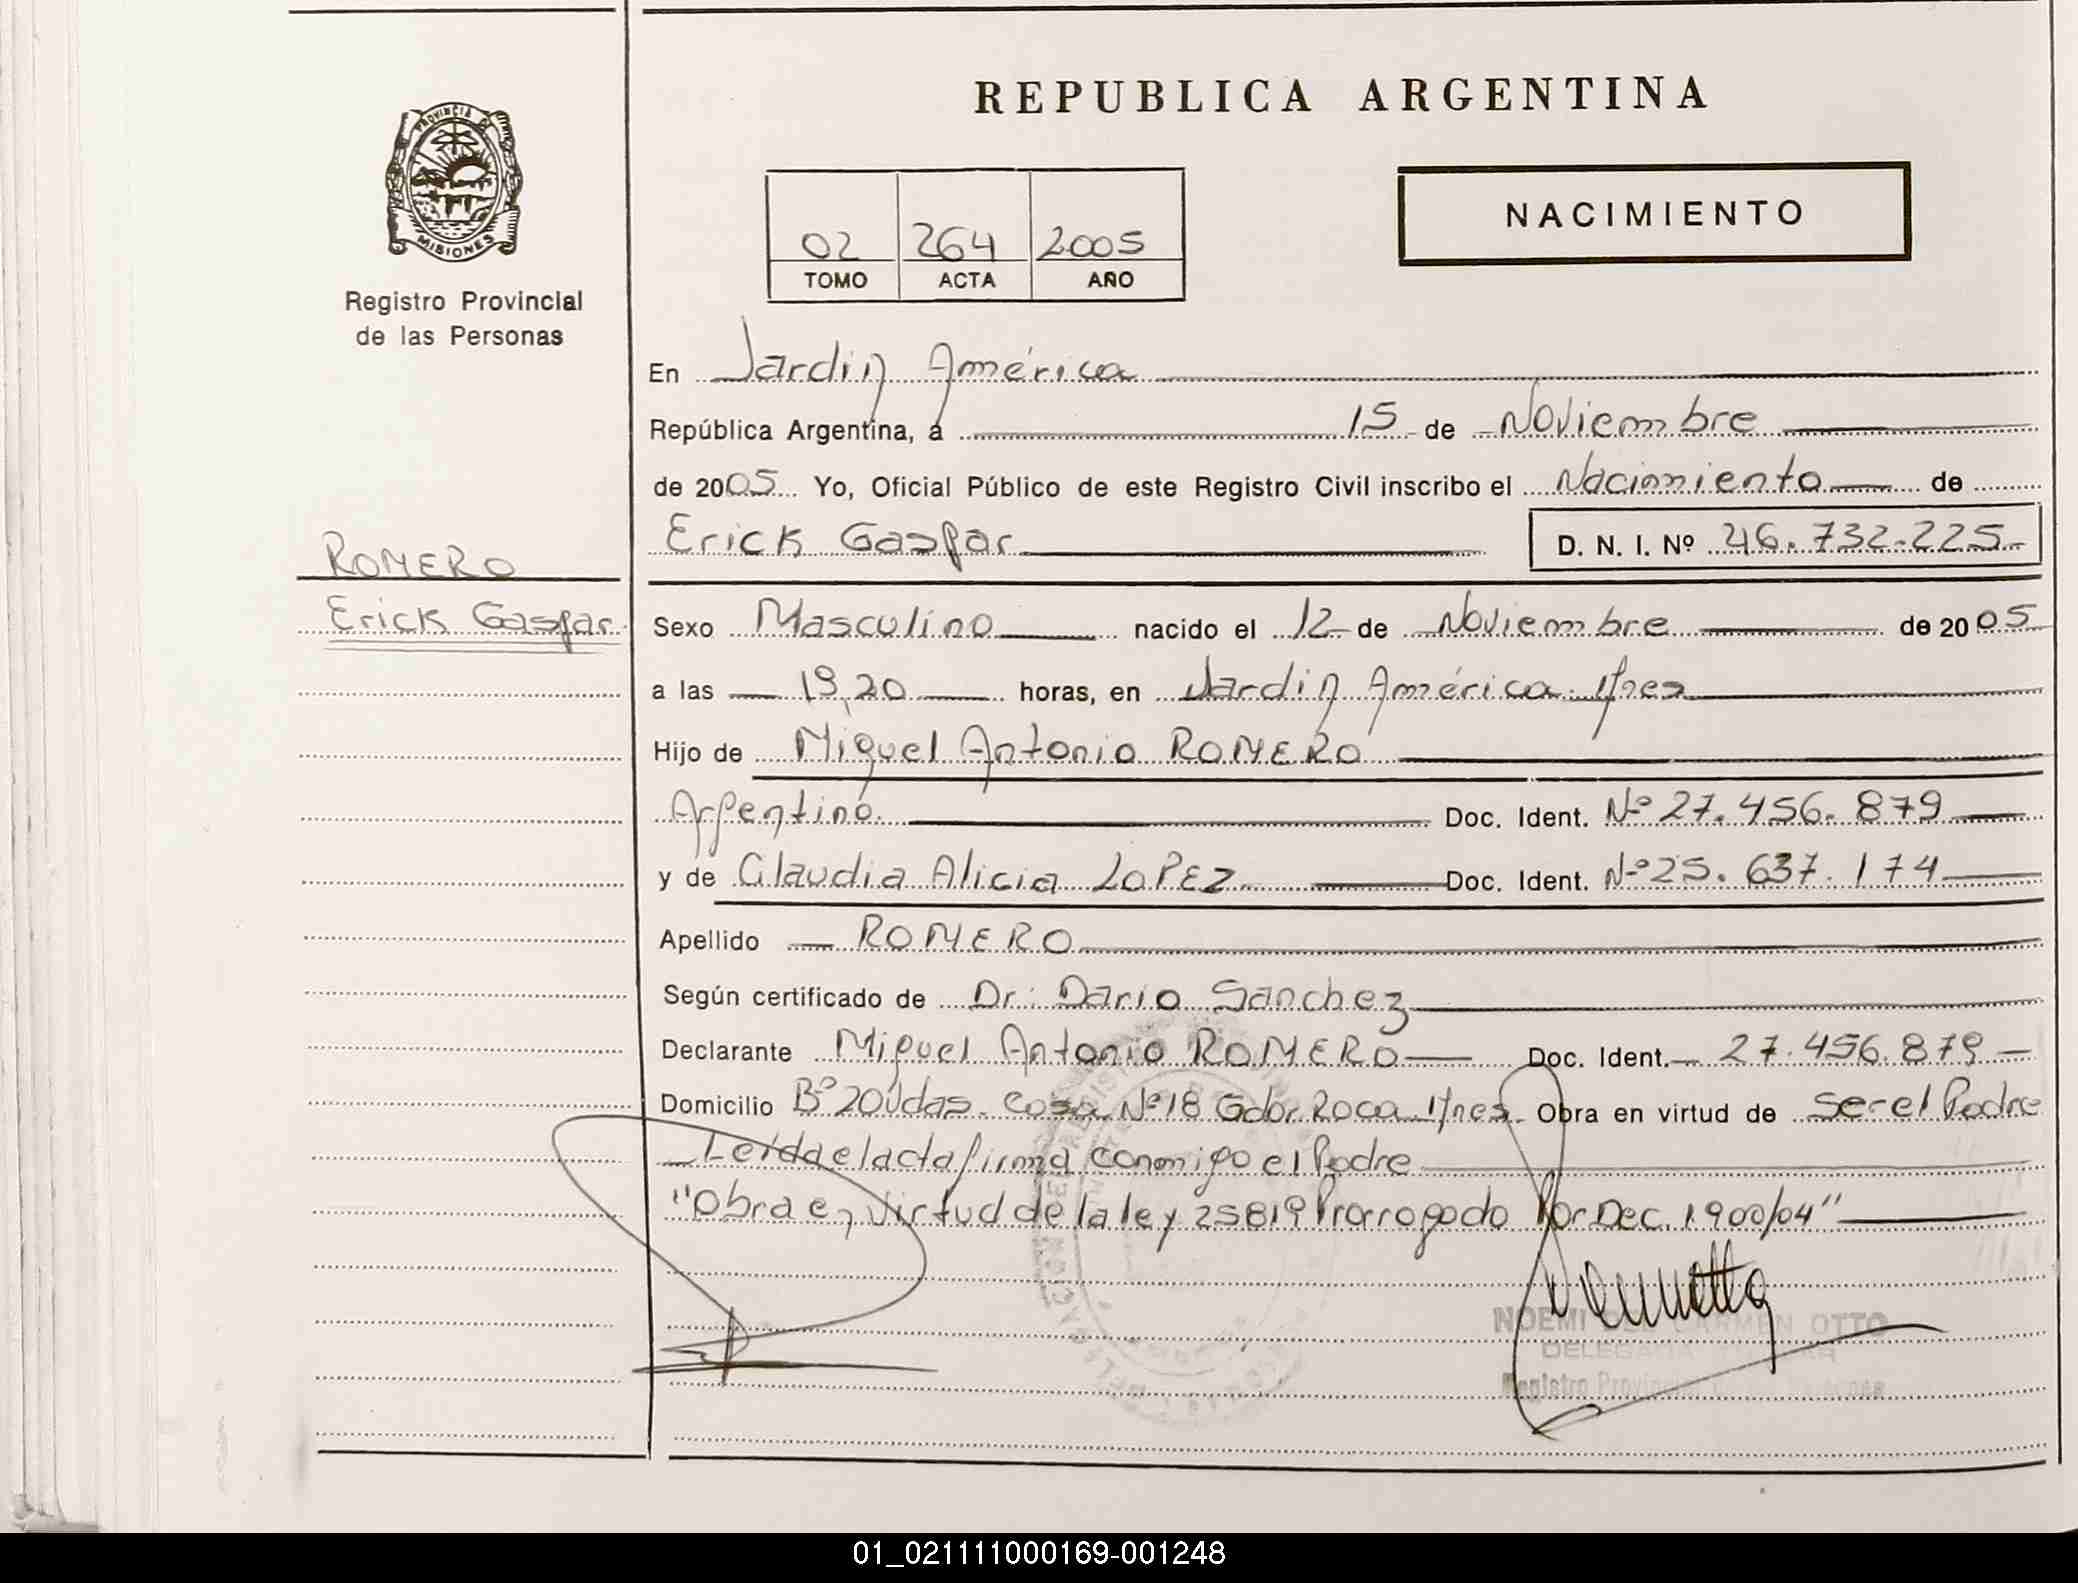 REPUBLICA ARGENTINA
PROVINCIA DE
MISIONES
Registro Provincial
de las Personas
02 264 2005
TOMO ACTA AÑO
NACIMIENTO
En Jardin América
República Argentina, a 15 de Noviembre
de 2005 Yo, Oficial Público de este Registro Civil inscribo el Nacimiento de
Erick Gaspar D. N. I. Nº 46.732.225
ROMERO
Erick Gaspar
Sexo Masculino nacido el 12 de Noviembre de 2005
a las 19,20 horas, en Jardin América Mnes
Hijo de Miguel Antonio ROMERO
Argentino Doc. Ident. Nº 27.456.879
y de Claudia Alicia LOPEZ Doc. Ident. Nº 25.637.174
Apellido ROMERO
Según certificado de Dr. Dario Sanchez
Declarante Miguel Antonio ROMERO Doc. Ident. 27.456.879
Domicilio Bº 20 Vdas. Casa Nº 18 Gdor Roca Mnes Obra en virtud de ser el Padre
Leída el acta firma conmigo el Padre
"Obra en virtud de la ley 25819 Prorrogado Por Dec. 1900/04"
NOEMI DEL CARMEN OTTO
DELEGADA
Registro Provincial
01_021111000169-001248